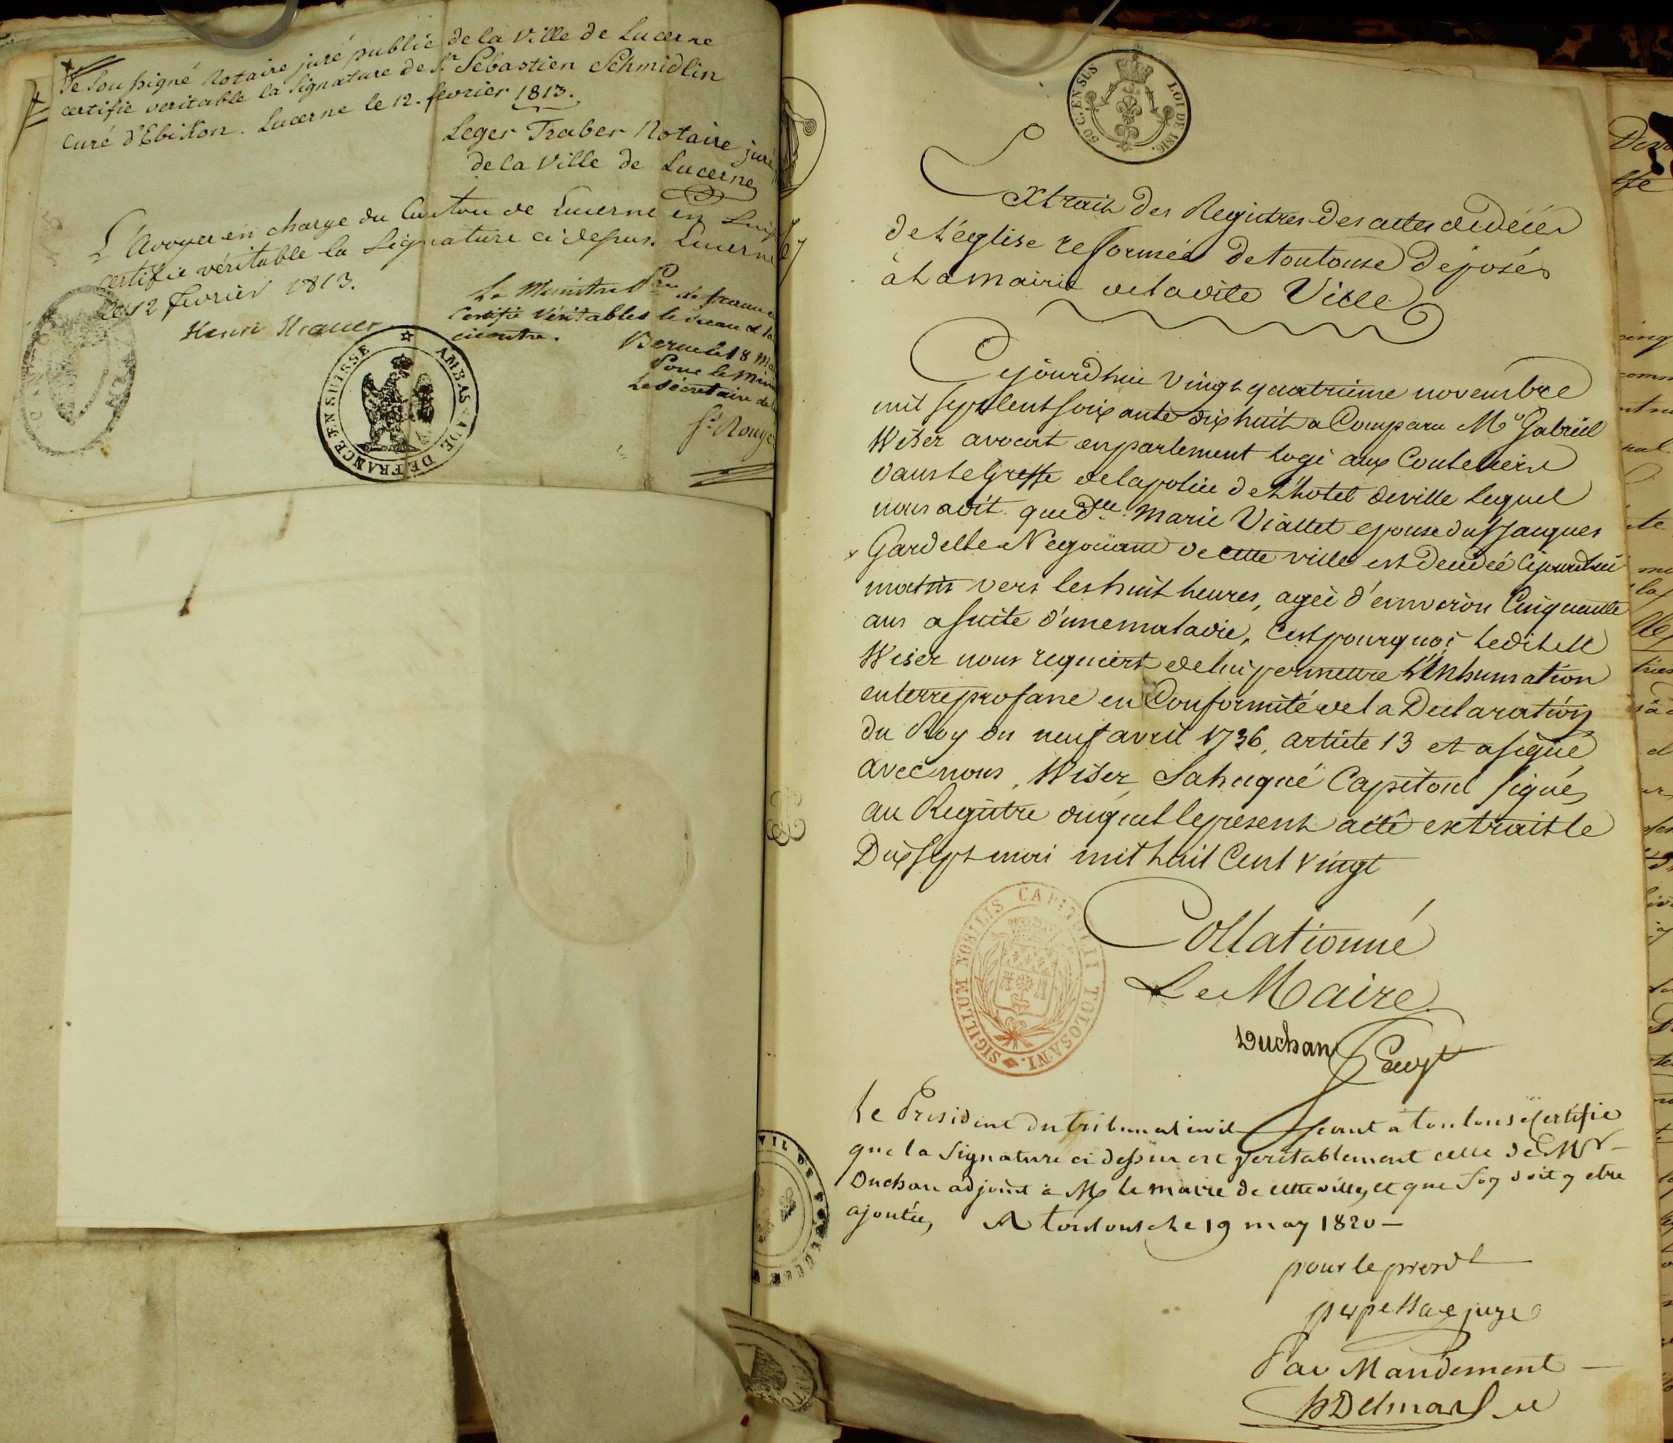 Je Soussigné Notaire juré public de la Ville de Lucerne
certifie veritable la Signature de Sr. Sebastien Schmidlin
curé d'Ebikon. Lucerne le 12. fevrier 1813.
Leger Traber Notaire juré
de la Ville de Lucerne
L'Avoyer en charge du Canton de Lucerne en Suiſ
certifie véritable la Signature ci deſsus. Lucerne
le 12 fevrier 1813.
Henri Krauer
Le Ministre de france
Certifie Véritables le sceau & la
cicontre.
Berne le 18 M
Pour le Min
Le Sécretaire de
Rouye
AMBASSADE DE FRANCE EN SUISSE
50 C. EN SUS LOI DE 1816.
Extrait des Registres des actes de décès
de L'église reformée de toulouse déposés
à La mairie de ladite Ville
Cejourdhui vingt quatrieme novembre
mil sept Cent soixante dix huit a Comparu Me Gabriel
Wiser avocat en parlement logé aux Couteliers
dans le Greffe de la police de L'hotel de ville lequel
nous a dit que dlle Marie Viallet epouse du Sr Jacques
Gardelle Negociant de cette ville est decedée cejourdhui
matin vers les huit heures, agée d'environ Cinquante
ans a suite d'une maladie, C'est pourquoi ledit Me
Wiser nous requiert de lui permettre L'Inhumation
en terre profane en Conformité de la Declaration
du Roy du neuf avril 1736, article 13 et a signé
avec nous, Wiser, Sahuqué Capitoul signés
au Registre duquel le present acte extrait le
Dix sept mai mil huit Cent vingt
Collationné
Le Maire
Duchan
SIGILLUM NOBILIS CAPITULI TOLOSANI.
Le President du tribunal civil Séant à toulouse Certifie
que la Signature ci deſsus est veritablement celle de Mr
Duchan adjoint à M. le maire de cette ville, et que foy doit y etre
ajoutée, A toulouse le 19 may 1820
pour le presidt
perpeſsac juge
Par Mandement
Delmas